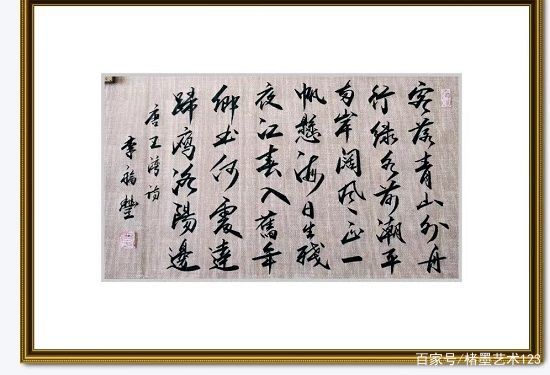 客路青山外舟
行绿水前潮平
两岸阔风正一
帆懸海日生殘
夜江春入舊年
鄉书何處達
歸雁洛陽邊
唐王湾诗
李福豐
百家号/楮墨艺术123